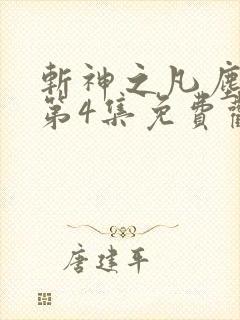 斬神之凡塵
第4集免費觀
唐建平